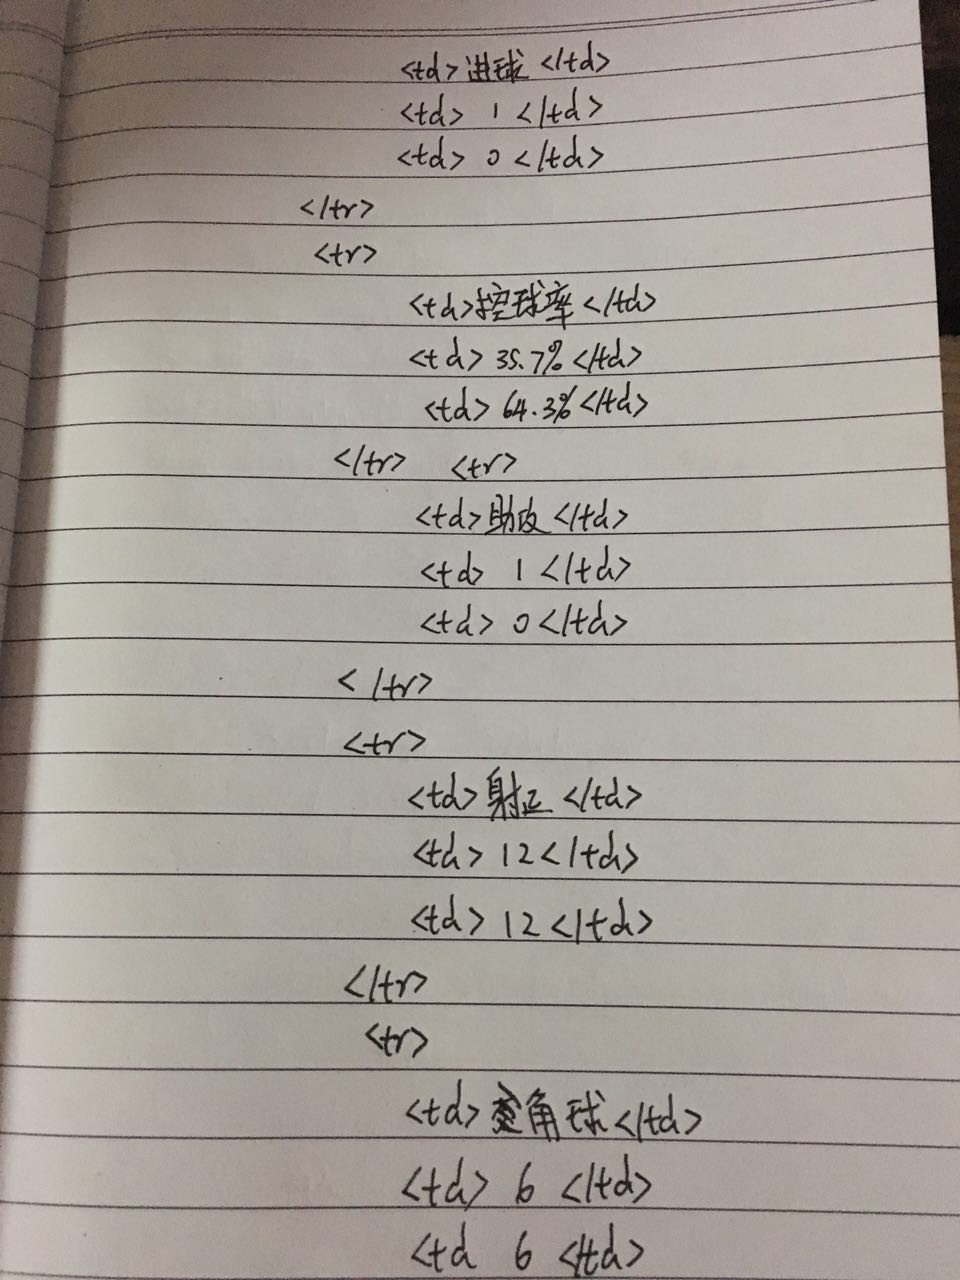 <td>进球</td>
<td> 1 </td>
<td> 0 </td>
</tr>
<tr>
<td>控球率</td>
<td> 35.7% </td>
<td> 64.3% </td>
</tr> <tr>
<td>助攻</td>
<td> 1 </td>
<td> 0 </td>
</tr>
<tr>
<td>射正</td>
<td> 12 </td>
<td> 12 </td>
</tr>
<tr>
<td> 角球</td>
<td> 6 </td>
<td 6 </td>